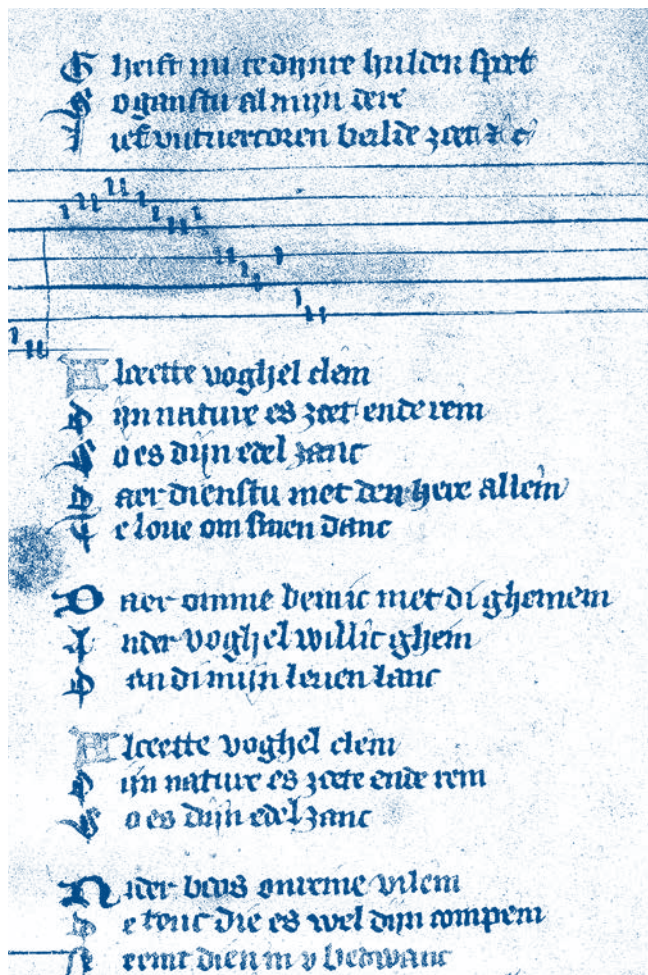 Gheift mi te dijnre hulden spoet
So ganstu al mijn dere
Lief vutuercoren beilde zoet &c
Aloeette voghel clein
Dijn nature es zoet ende rein
So es dijn edel zanc
Daer dienstu met den here allein
Te loue om sinen danc
Daer omme bemic met di ghemein
Ander voghel willic ghein
Dan di mijn leuen lanc
Aloeette voghel clein
Dijn nature es zoete ende rein
So es dijn edel zanc
Nider boos onreine vilein
die es wel dijn compein
dien in v bedwanc